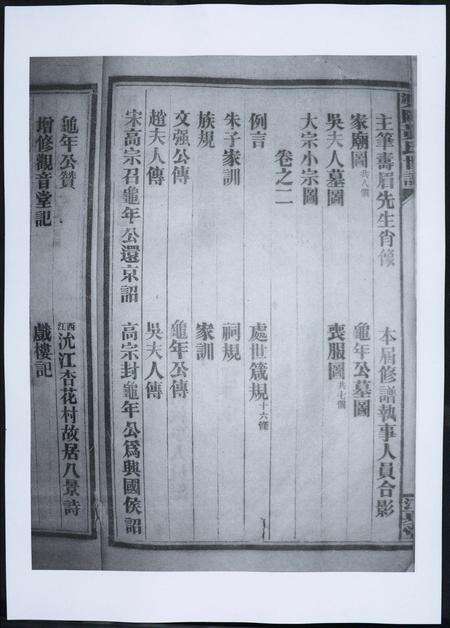 主筆壽眉先生肖像 本屆修譜執事人員合影
家廟圖共八個 龜年公墓圖
吳夫人墓圖 喪服圖共七個
大宗小宗圖
卷之二
例言 處世箴規十六條
朱子家訓 祠規
族規 家訓
文强公傳 龜年公傳
趙夫人傳 吳夫人傳
宋高宗召龜年公還京詔 高宗封龜年公爲興國侯詔
龜年公贊 西江沈江杏花村故居八景詩
增修觀音堂記 戲樓記